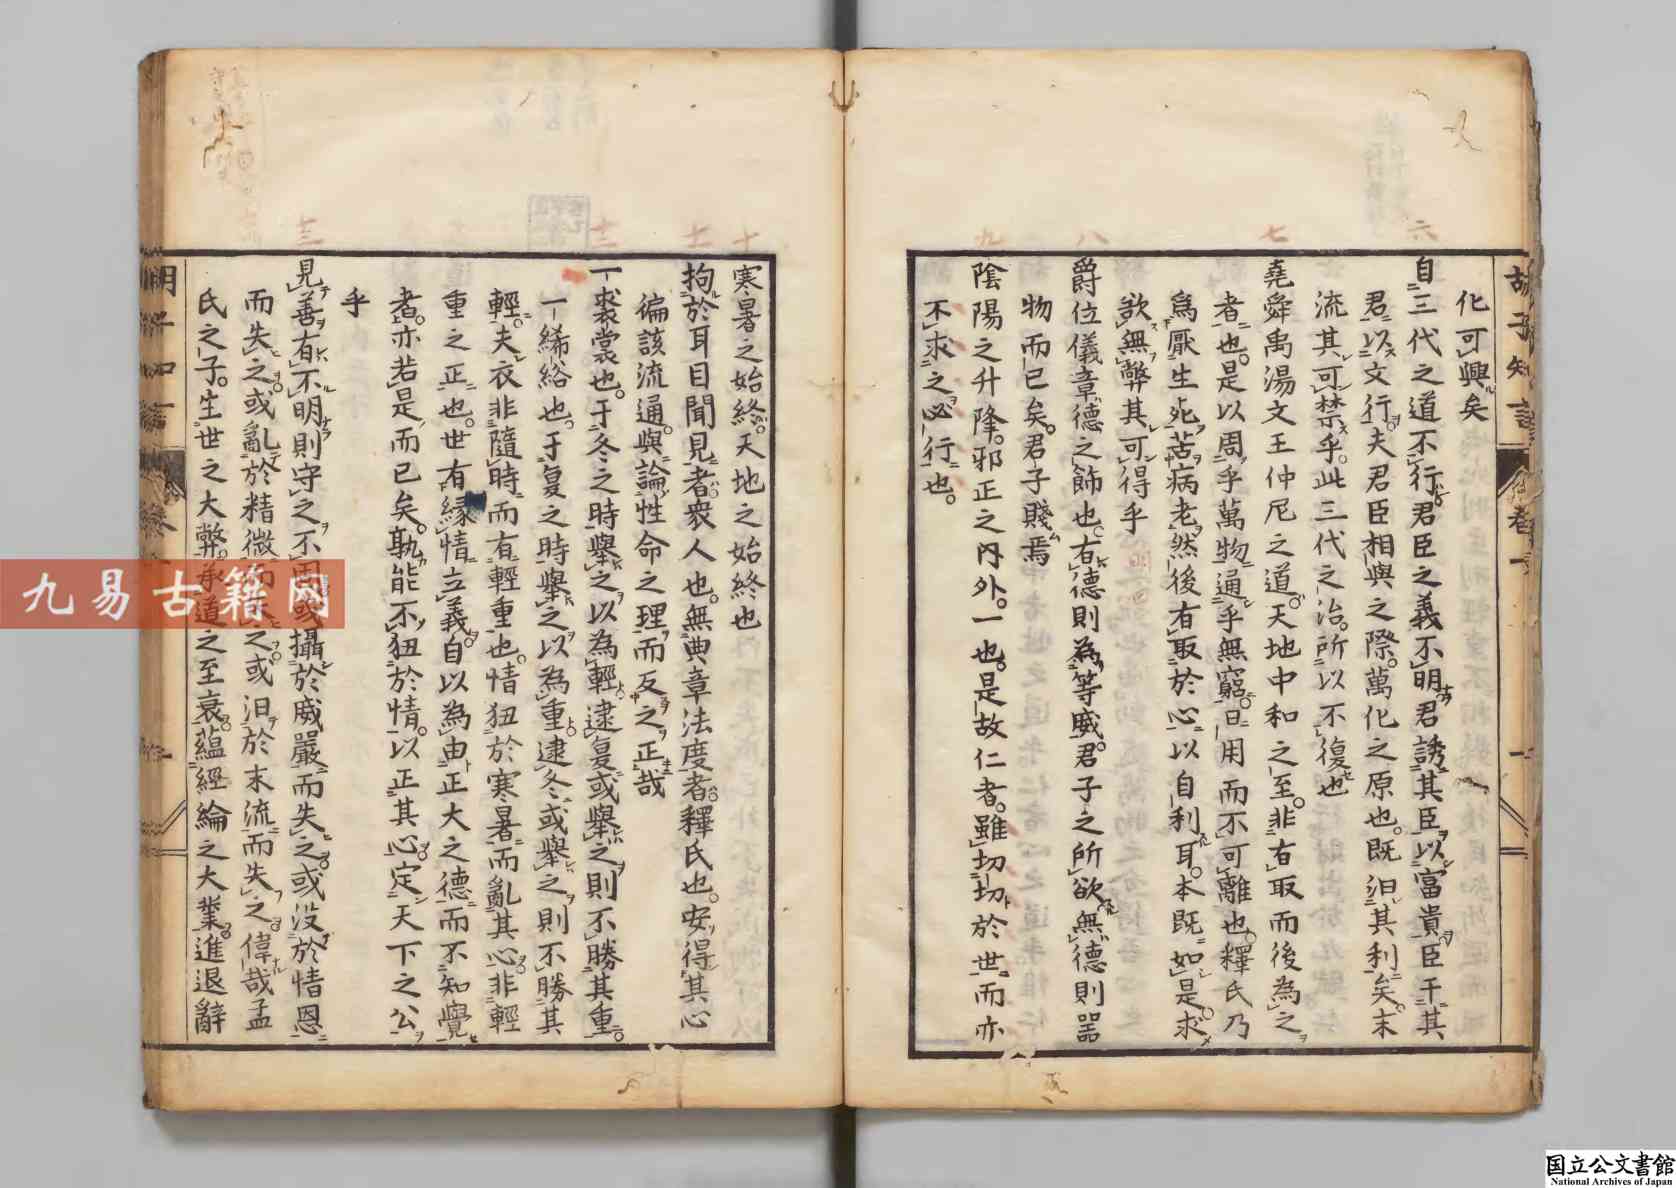 六
化可興矣
自三代之道不行君臣之義不明君誘其臣以富貴臣干其
君以文行夫君臣相與之際萬化之原也既汨其利矣末
流其可禁乎此三代之治所以不復也
七
堯舜禹湯文王仲尼之道天地中和之至非有取而後為之
者也是以周乎萬物通乎無窮日用而不可離也釋氏乃
爲厭生死苦病老然後有取於心以自利耳本既如是求
欲無弊其可得乎
八
爵位儀章德之飾也有德則為等威君子之所欲無德則器
物而已矣君子賤焉
九
陰陽之升降邪正之內外一也是故仁者雖切切於世而亦
不求之必行也
十
寒暑之始終天地之始終也
十一
拘於耳目聞見者衆人也無典章法度者釋氏也安得其心
徧該流通與論性命之理而反之正哉
十二
一裘裳也于冬之時舉之以為輕逮夏或舉之則不勝其重
一絺綌也于夏之時舉之以為重逮冬或舉之則不勝其
輕夫衣非隨時而有輕重也情狃於寒暑而亂其心非輕
重之正也世有緣情立義自以為由正大之德而不知覺
者亦若是而已矣孰能不狃於情以正其心定天下之公
乎
十三
見善有不明則守之不固或攝於威嚴而失之或没於情恩
而失之或亂於精微而失之或汨於末流而失之偉哉孟
氏之子生世之大弊承道之至衰蘊經綸之大業進退辭
胡子知言
卷一
一
九易古籍网
国立公文書館
National Archives of Japan